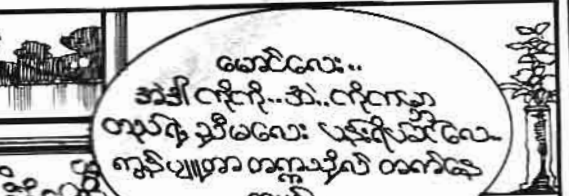 မောင်လေး..
အဲဒါ ကိုကို..အဲ..ကိုကမ္ဘာ
တယ်ရဲ့ ညီမလေး ယဉ်းရီပဲခင်လေ..
ကွန်ပျူတာ တက္ကသိုလ် တက်နေ